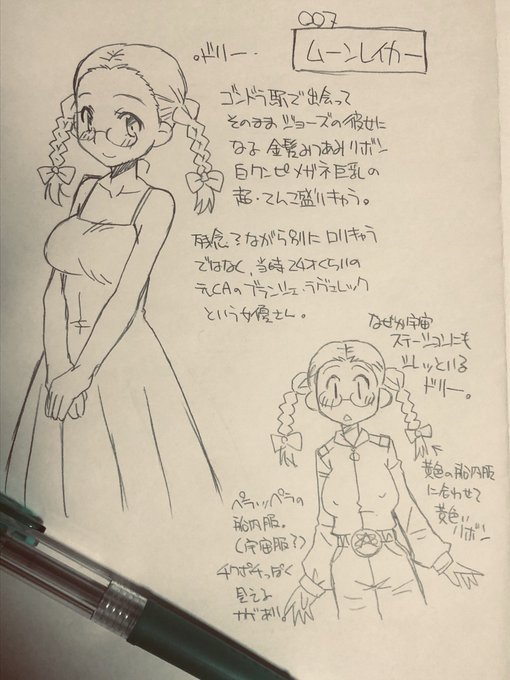 007
ムーンレイカー
ドリー…
ゴンドラ駅で出会って
そのままジョーズの彼女に
なる金髪みつあみリボン
白ワンピメガネ巨乳の
超・てんこ盛りキャラ。
残念ながら別にロリキャラ
ではなく、当時24才くらいの
元CAのブランシェ・ラヴェレック
という女優さん。
なぜか宇宙
ステーションにも
シレッといる
ドリー。
黄色の船内服
に合わせて
黄色いリボン
ペラッペラの
船内服。
(宇宙服?)
チクポチっぽく
見える